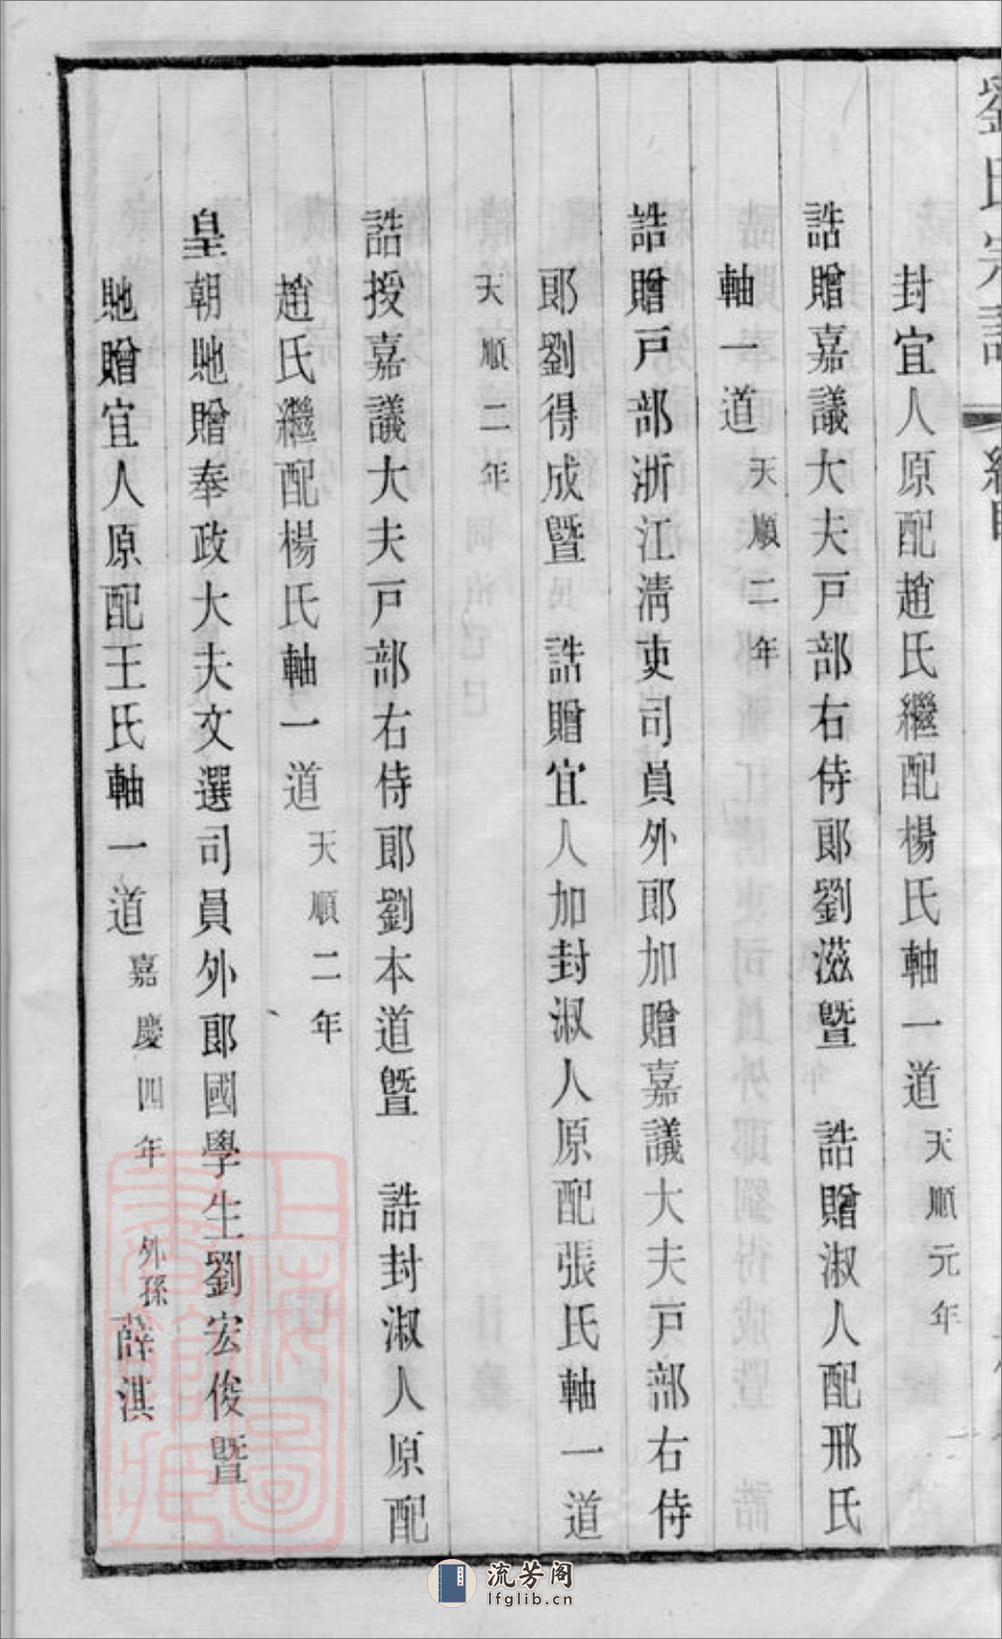 劉氏宗譜
封宜人原配趙氏繼配楊氏軸一道天順元年
誥贈嘉議大夫戸部右侍郎劉滋暨　誥贈淑人配邢氏
軸一道天順二年
誥贈戸部浙江清吏司員外郎加贈嘉議大夫戸部右侍
郎劉得成暨　誥贈宜人加封淑人原配張氏軸一道
天順二年
誥授嘉議大夫戸部右侍郎劉本道暨　誥封淑人原配
趙氏繼配楊氏軸一道天順二年
皇朝貤贈奉政大夫文選司員外郎國學生劉宏俊暨
貤贈宜人原配王氏軸一道嘉慶四年外孫薛淇
上海圖書館藏
流芳阁
lfglib.cn